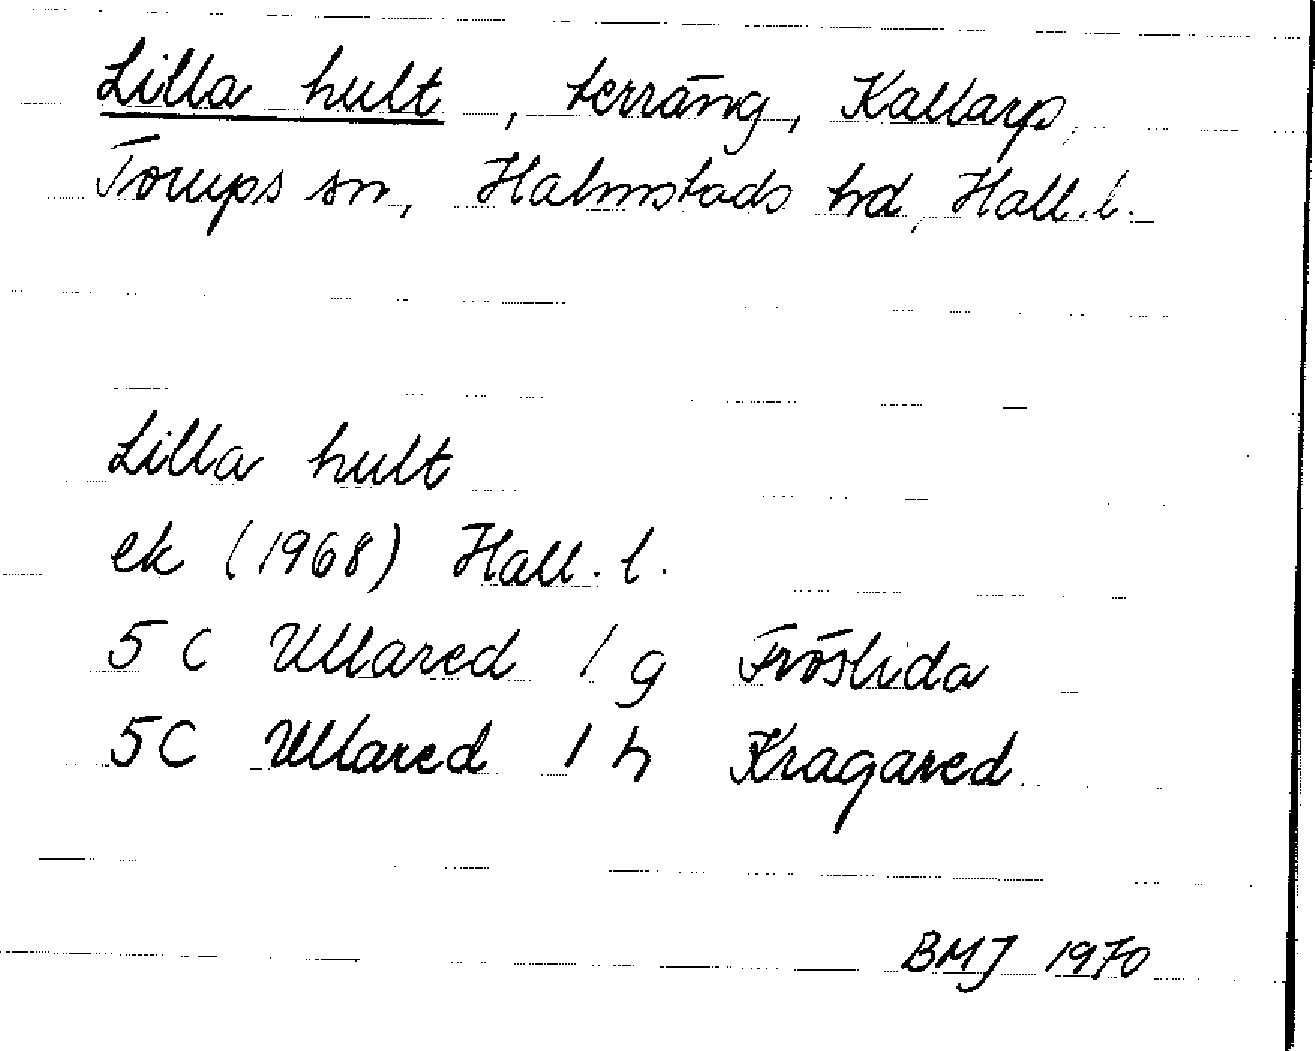 Lilla hult, terräng, Kallarp,
Torups sn, Halmstads hd, Hall.l.
Lilla hult
ek (1968) Hall.l.
5C Ullared 1g Fröslida
5C Ullared 1h Kragared
BMJ 1970